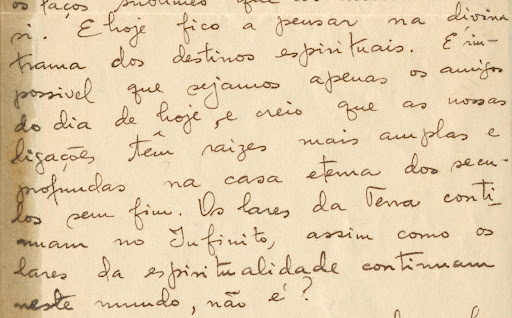 os laços sublimes que os
si. E hoje fico a pensar na divina
trama dos destinos espirituais. E' im-
possivel que sejamos apenas os amigos
do dia de hoje, e creio que as nossas
ligações têm raizes mais amplas e
profundas na casa eterna dos secu-
los sem fim. Os lares da Terra conti-
nuam no Infinito, assim como os
lares da espiritualidade continuam
neste mundo, não é?